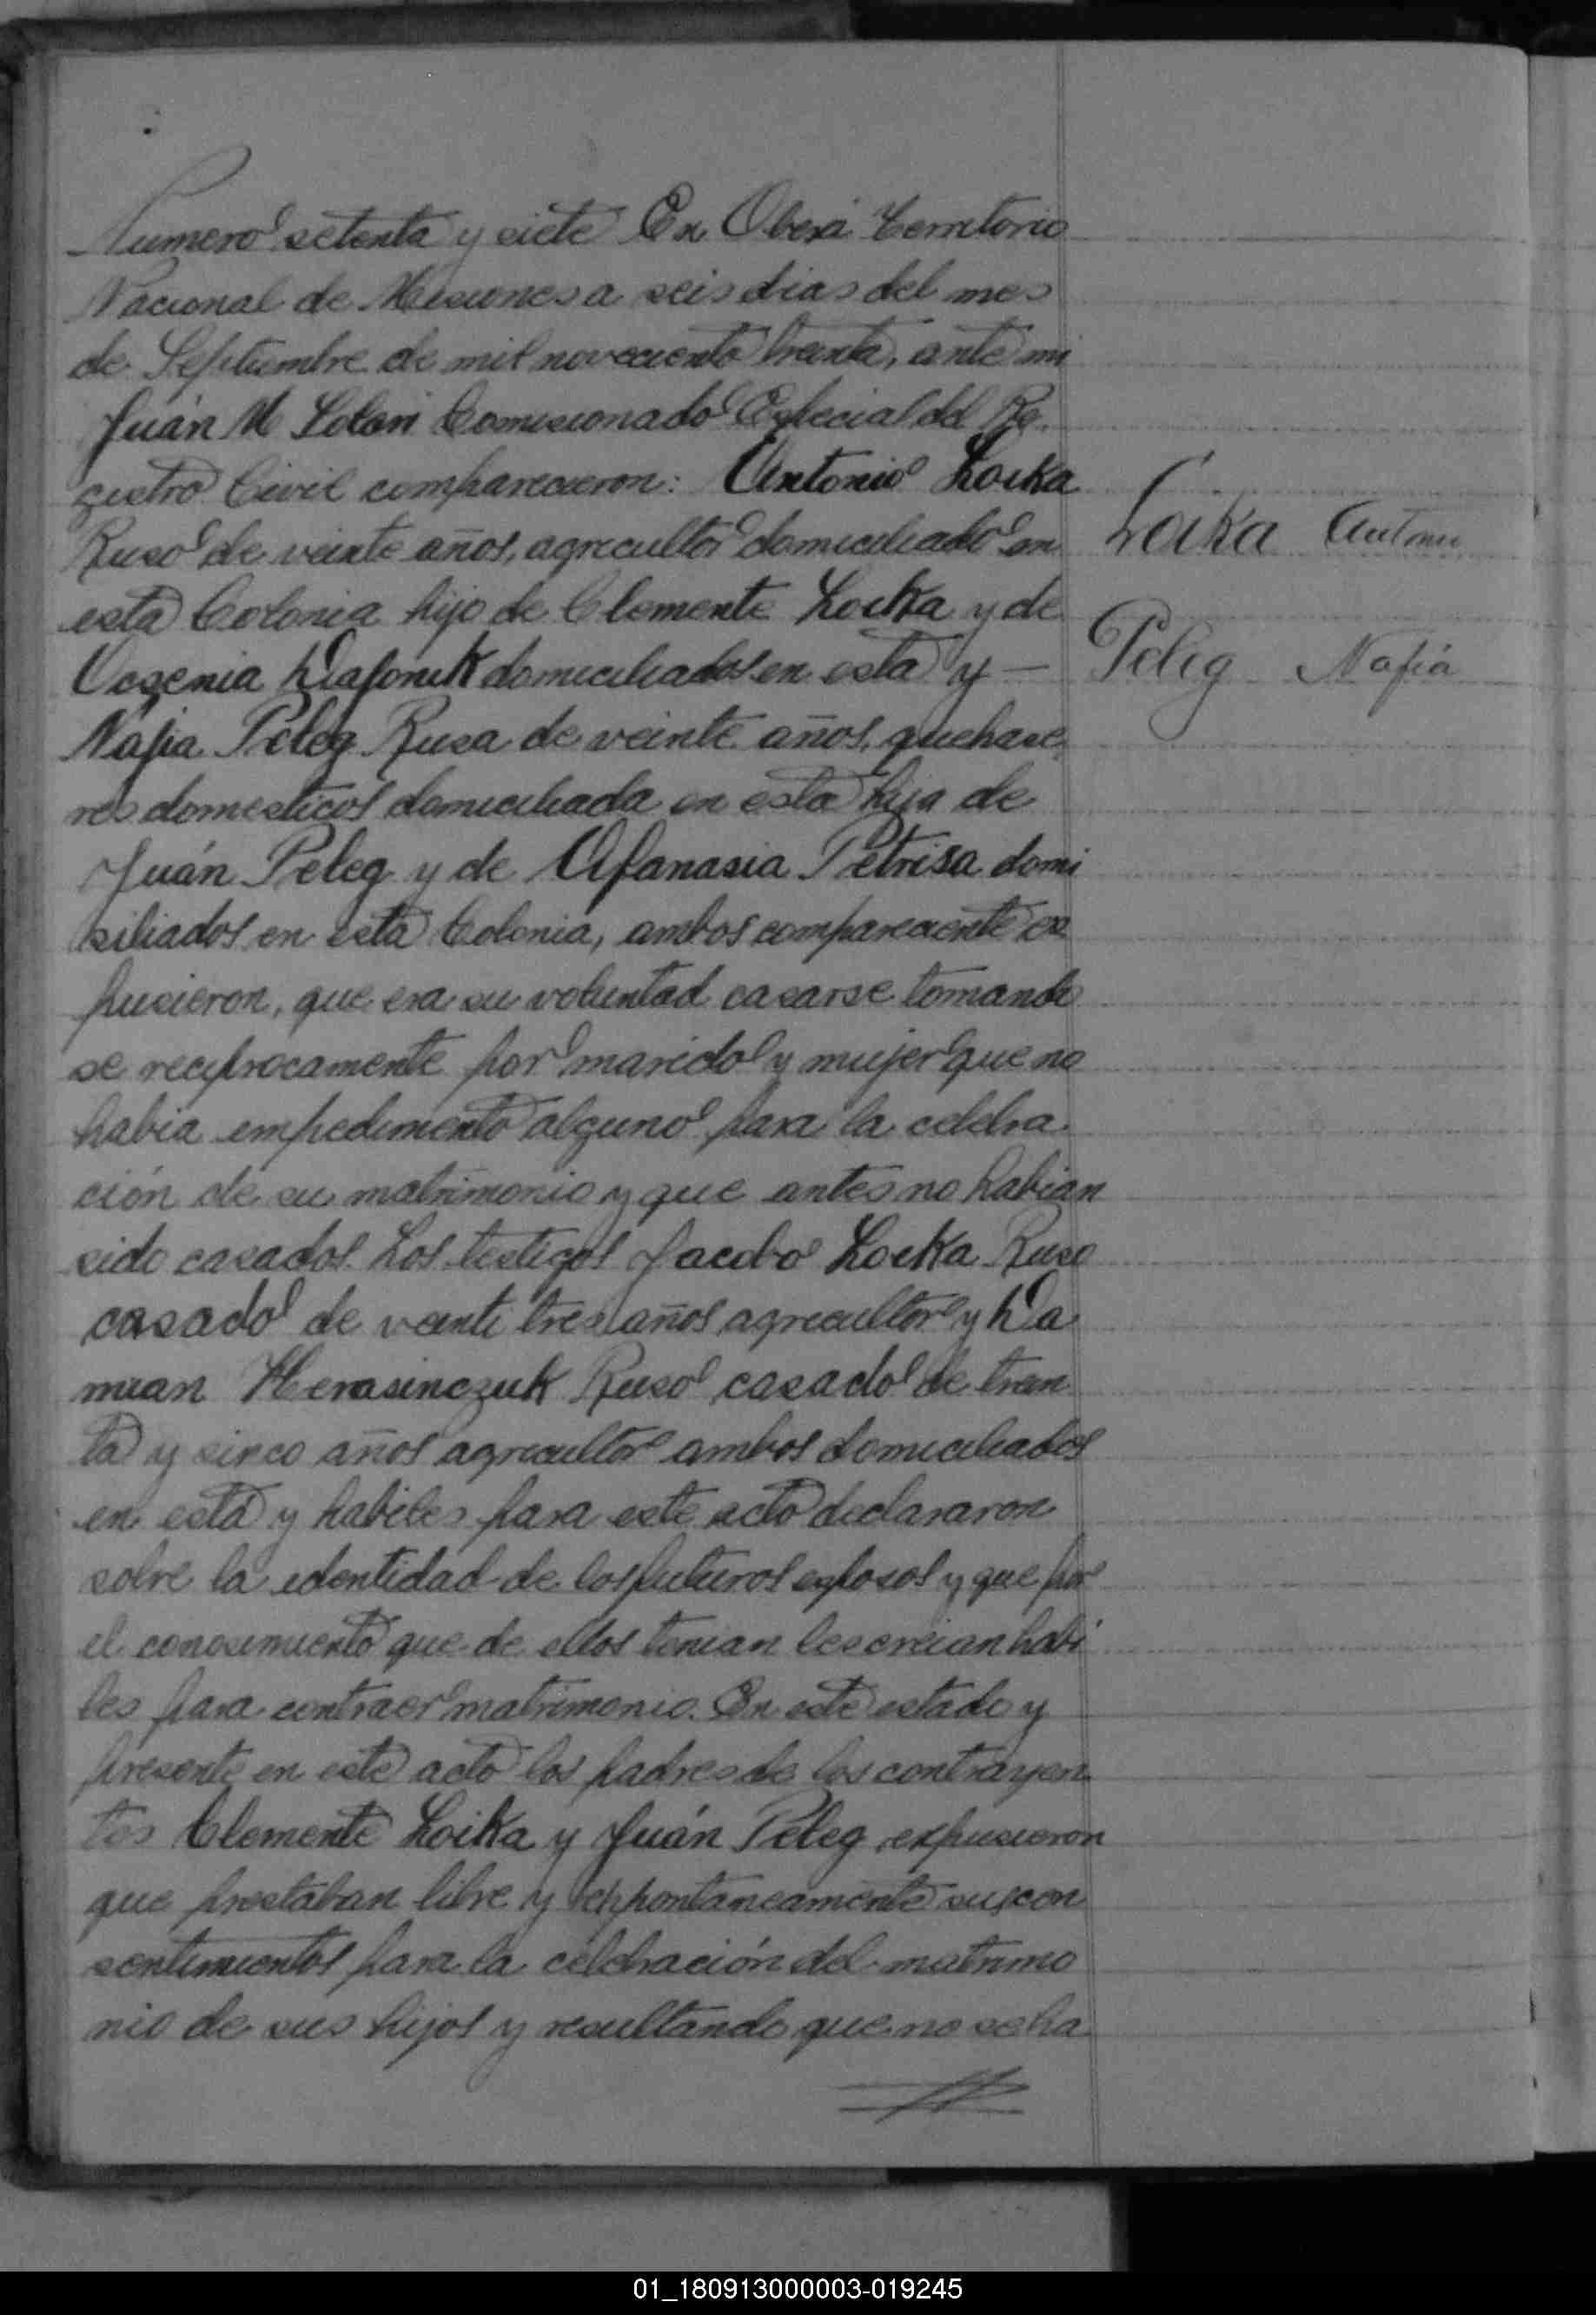 Numero setenta y siete En Oberá Territorio
Nacional de Misiones a seis dias del mes
de Septiembre de mil noveciento treinta, ante mi
Juán M Solari Comisionado Especial del Re-
gistro Civil comparecieron: Antonio Loika
Loika Antonio
Ruso de veinte años, agricultor domiciliado en
esta Colonia hijo de Clemente Loika y de
domiciliados en esta y —
Peleg Nafia
Nafia Peleg Rusa de veinte años, quehace
res domesticos domiciliada en esta hija de
Juán Peleg y de Afanasia Petrisa domi
siliados en esta Colonia, ambos compareciente ex
pusieron, que era su voluntad casarse tomando
se reciprocamente por marido y mujer que no
habia impedimento alguno para la celebra
ción de su matrimonio y que antes no habian
sido casados. Los testigos Jacobo Loika Ruso
casado de veinti tres años agricultor y Da
mian Herasinczuk Ruso casado de trein
ta y sinco años agricultor ambos domiciliados
en esta y habiles para este acto declararon
sobre la identidad de los futuros esposos y que por
el conosimiento que de ellos tenian les creian habi
les para contraer matrimonio. En este estado y
presente en este acto los padres de los contrayen
tes Clemente Loika y Juán Peleg expusieron
que prestaban libre y esppontáneamente sus con
sentimientos para la celebración del matrimo
nio de sus hijos y resultando que no se ha
01_180913000003-019245